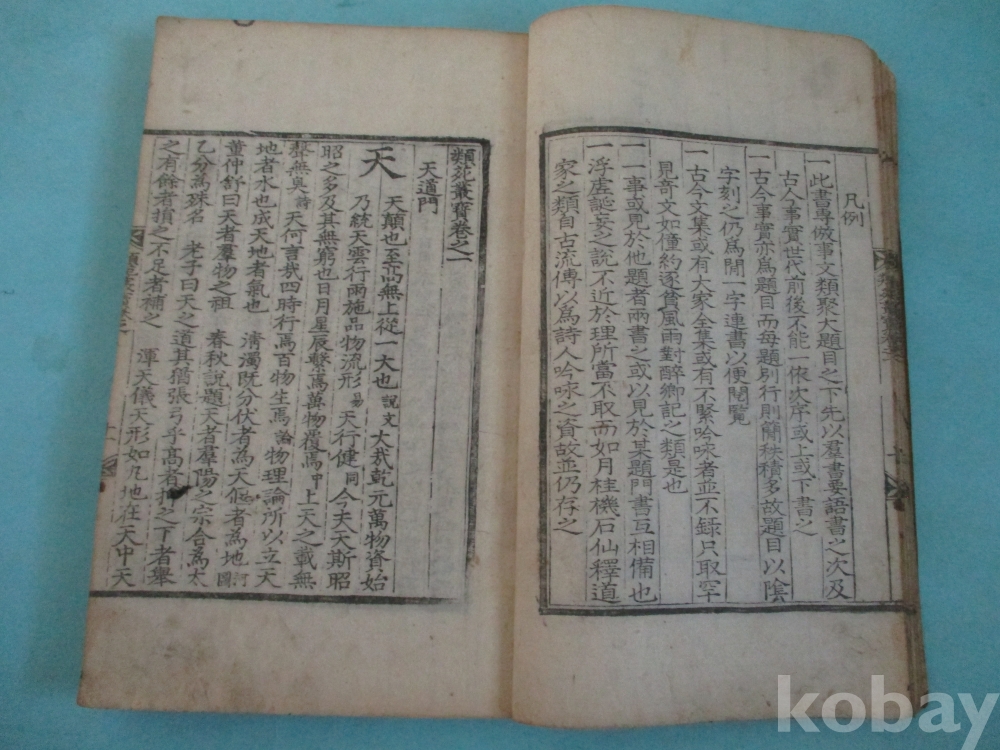 凡例
一此書專倣事文類聚大題目之下先以羣書要語書之次及
古今事實世代前後不能一依次序或上或下書之
一古今事實亦爲題目而每題別行則簡秩積多故題目以陰
字刻之仍爲閒一字連書以便閱覽
一古今文集或有大家全集或有不緊吟咏者並不錄只取罕
見奇文如僮約逐貧風雨對醉鄉記之類是也
一一事或見於他題者兩書之或以見於某題門書互相備也
一浮虛誕妄之說不近於理所當不取而如月桂機石仙釋道
家之類自古流傳以爲詩人吟咏之資故並仍存之
類苑叢寶卷之一
天道門
天 天顚也至高無上從一大也說文 大哉乾元萬物資始
乃統天雲行雨施品物流形易 天行健同 今夫天斯昭
昭之多及其無窮也日月星辰繫焉萬物覆焉中 上天之載無
聲無臭詩 天何言哉四時行焉百物生焉論 物理論所以立天
地者水也成天地者氣也 淸濁既分伏者為天偃者為地河圖
董仲舒曰天者羣物之祖 春秋說題天者羣陽之宗合爲太
乙分爲殊名 老子曰天之道其猶張弓乎高者抑之下者舉
之有餘者損之不足者補之 渾天儀天形如 地在天中天
kobay